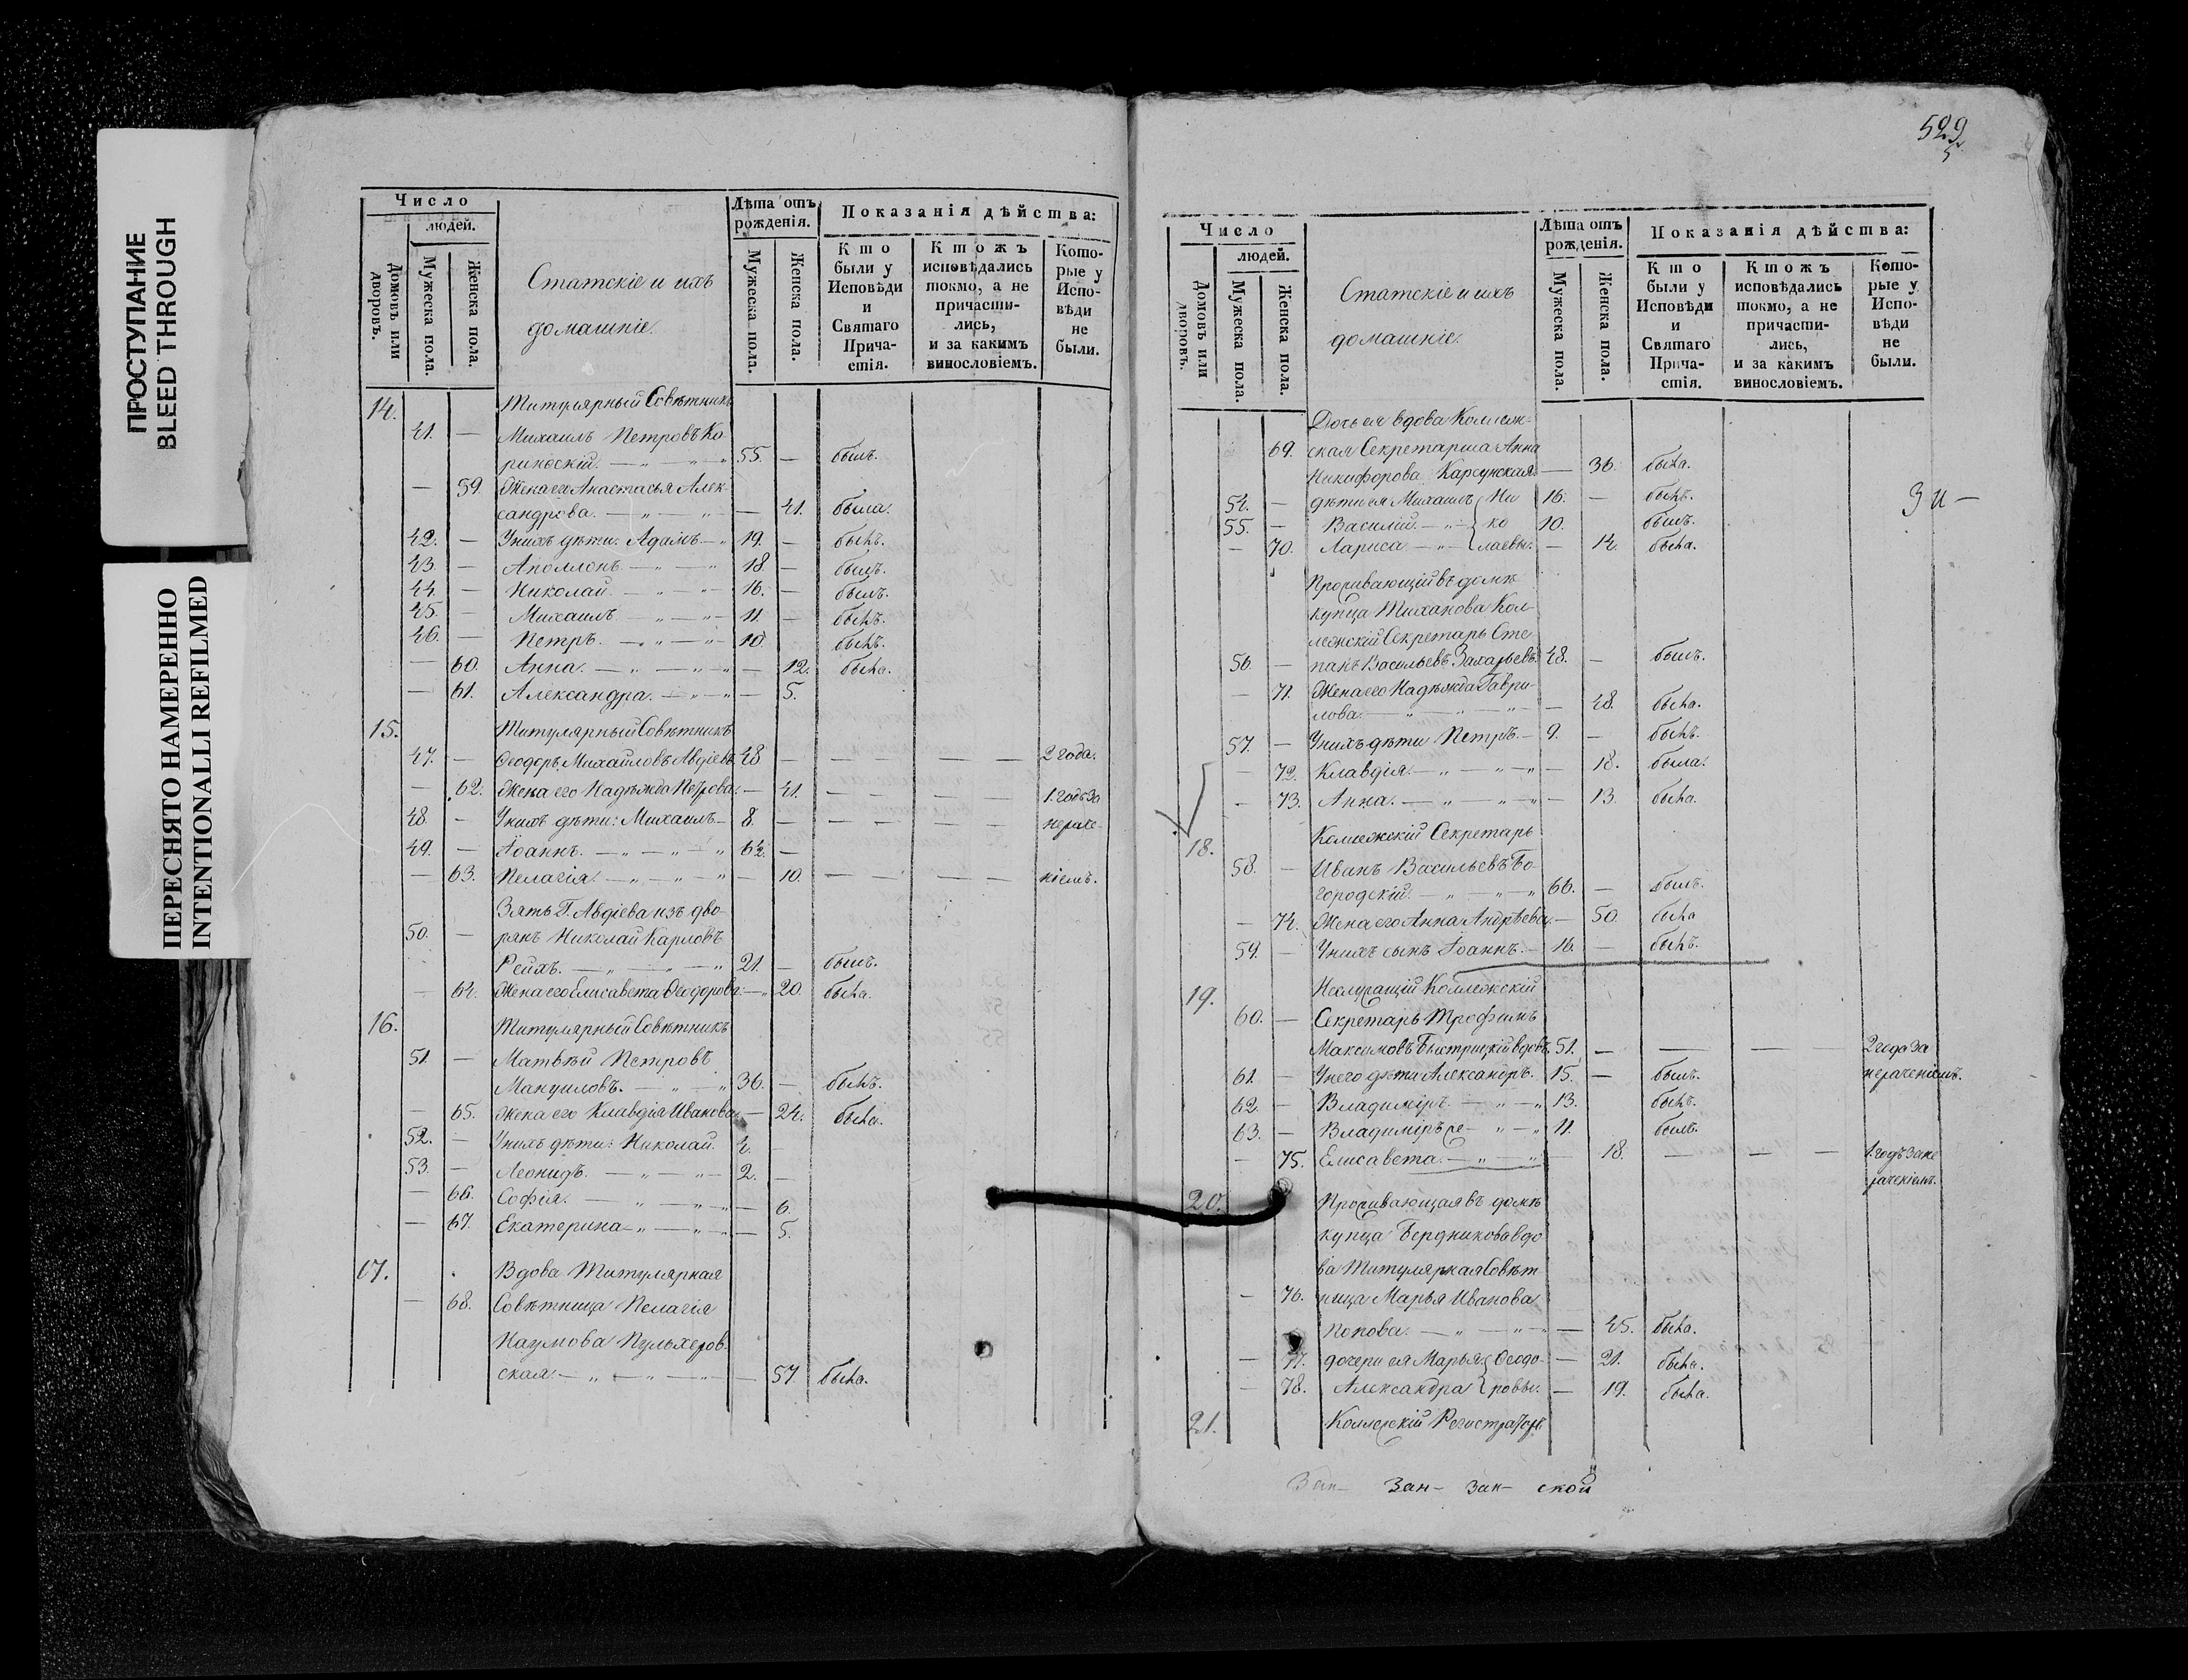 ПРОСТУПАНИЕ
BLEED THROUGH
ПЕРЕСНЯТО НАМЕРЕННО
INTENTIONALLI REFILMED
Число
людей.
Домовъ или дворовъ.
Мужеска пола.
Женска пола.
Статскіе и ихъ
домашніе.
Лѣта отъ
рожденія.
Мужеска пола.
Женска пола.
Показанія дѣйства:
Кто
были у
Исповѣди
и
Святаго
Прича-
стія.
Ктожъ
исповѣдались
токмо, а не
причасти-
лись,
и за какимъ
винословіемъ.
Кото-
рые у
Испо-
вѣди
не
были.
14. Титулярный Совѣтникъ
41. — Михаилъ Петровъ Ко
ринскій. — „ — „ 55. — былъ.
— 59. Жена его Анастасья Алек-
сандрова. — „ — „ — — 41. была.
42. — У нихъ дѣти: Адамъ — „ 19. — былъ.
43. — Аполлонъ. — „ — „ 18 — былъ.
44. — Николай. — „ — „ — 16. — былъ.
45. — Михаилъ — „ — „ — 11. — былъ.
46. — Петръ. — „ — „ — 10. былъ.
— 60. Анна. — „ — „ — „ — 12. была.
— 61. Александра. — „ — „ — 5.
15. Титулярный Совѣтникъ
47. — Ѳеодоръ Михайловъ Авдіевъ. 48 — — — — — 2 года.
— 62. Жена его Надѣжда Петрова. — 41. — — — — 1. годъ за
48 — У нихъ дѣти: Михаилъ — 8. — — — — — нераче-
49. — Іоаннъ. — „ — „ — „ 6½. —
— 63. Пелагія. — „ — „ — „ — 10. — — — — ніемъ.
Зять Г. Авдіева изъ дво-
50. — рянъ Николай Карловъ
Рейхъ. — „ — „ — „ 21. — былъ.
— 64. Жена его Елисавета Ѳеодорова. — „ 20. была.
16. Титулярный Совѣтникъ
51. — Матвѣй Петровъ
Мануиловъ. — „ — „ 36. — былъ.
— 65. Жена его Клавдія Иванова. — 24. была.
52. — У нихъ дѣти: Николай. 4. —
53. — Леонидъ. — „ — „ — 2. —
— 66. Софія. — „ — „ — „ — 6.
— 67. Екатерина — „ — „ — „ — 5.
17. Вдова Титулярная
— 68. Совѣтница Пелагія
Наумова Пульхеров-
ская. — „ — „ — „ — — 57 была.
529
5
Число
людей.
Домовъ или дворовъ.
Мужеска пола.
Женска пола.
Статскіе и ихъ
домашніе.
Лѣта отъ
рожденія.
Мужеска пола.
Женска пола.
Показанія дѣйства:
Кто
были у
Исповѣди
и
Святаго
Прича-
стія.
Ктожъ
исповѣдались
токмо, а не
причасти-
лись,
и за какимъ
винословіемъ.
Кото-
рые у
Испо-
вѣди
не
были.
Дочь ея вдова Коллеж-
69. ская Секретарша Анна
Никифорова Карсунская. — 36. была.
54. — дѣти ея Михаилъ { Ни 16. — былъ.
55. — Василій. — „ — { ко 10. былъ.
— 70. Лариса. — „ — { лаевы. — 14. была.
Проживающій въ домѣ
купца Тиханова Кол-
лежскій Секретарь Сте
56. — панъ Васильевъ Захарьевъ. 48. — былъ.
— 71. Жена его Надѣжда Гаври-
лова. — „ — „ — „ — — 48. была.
57. — У нихъ дѣти Петръ. — 9. — былъ.
— 72. Клавдія. — „ — „ — „ — 18. была.
— 73. Анна. — „ — „ — „ — 13. была.
18. Коллежскій Секретарь
58. — Иванъ Васильевъ Бо-
городскій. — „ — „ — „ 66. — былъ.
— 74. Жена его Анна Андрѣева. — 50. была
59. — У нихъ сынъ Іоаннъ. — 16. — былъ.
19. Неслужащій Коллежскій
60. — Секретарь Трофимъ
Максимовъ Быстрицкій вдовъ. 51. — — — 2 года за
61. — У него дѣти Александръ. 15. — былъ. нераченіемъ.
62. — Владиміръ. — „ — „ 13. былъ.
63. — Владиміръ 2е — „ — „ 11. былъ.
— 75. Елисавета. — „ — „ — 18. — — — 1. годъ за не
раченіемъ.
20. Проживающая въ домѣ
купца Бердникова вдо
ва Титулярная Совѣт
— 76. ница Марья Иванова
Попова. — „ — „ — — 45. была.
— 77. дочери ея Марья { Ѳеодо- — 21. была.
— 78. Александра { ровы. — 19. была.
21. Коллежскій Регистраторъ
Зан- Зан- зан- ской